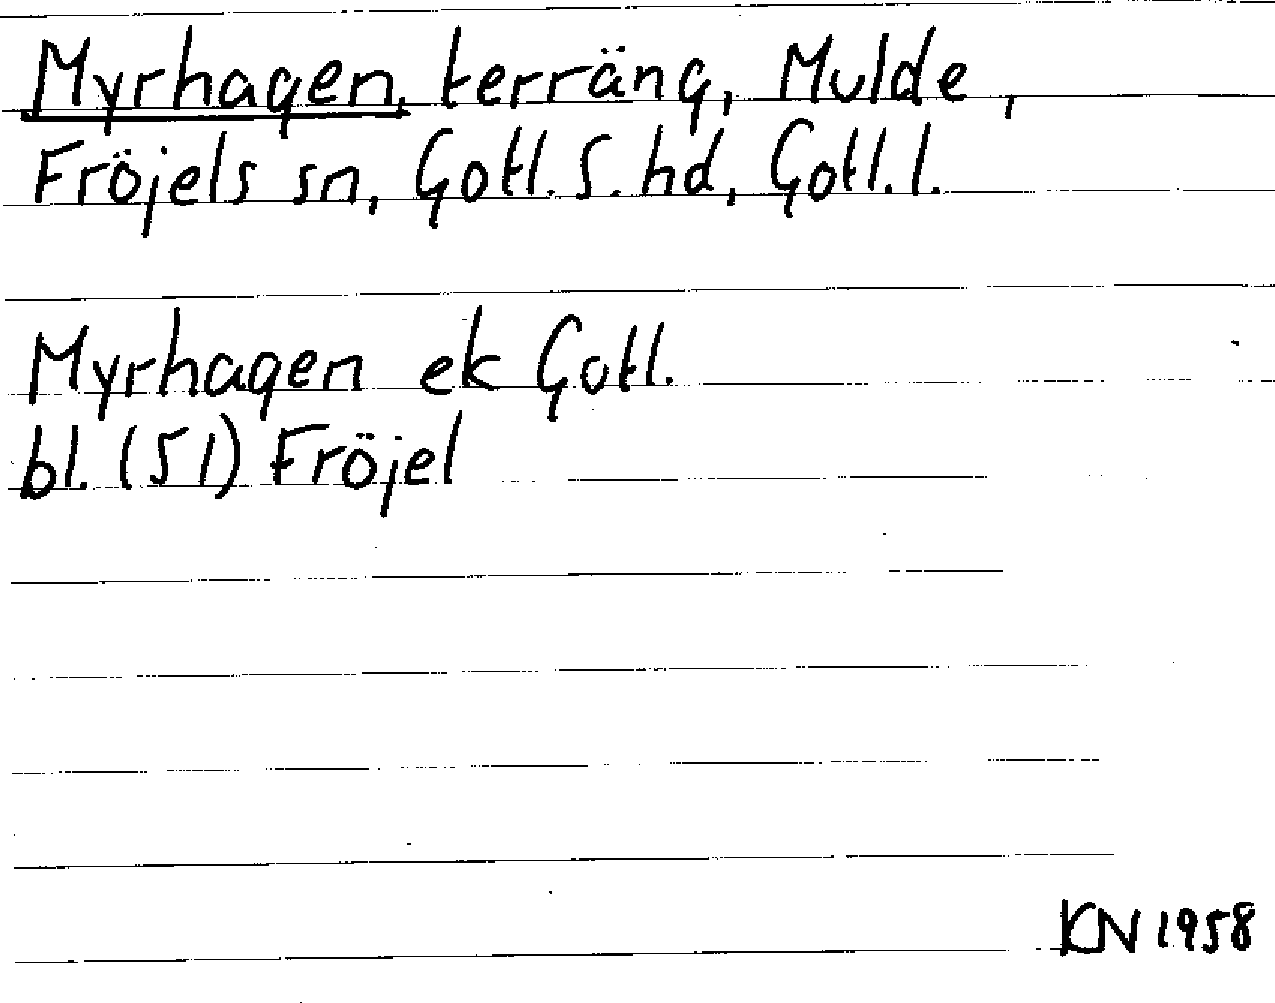 Myrhagen, terräng, Mulde,
Fröjels sn, Gotl. S. hd, Gotl. l.
Myrhagen ek Gotl.
bl. (51) Fröjel
KN 1958